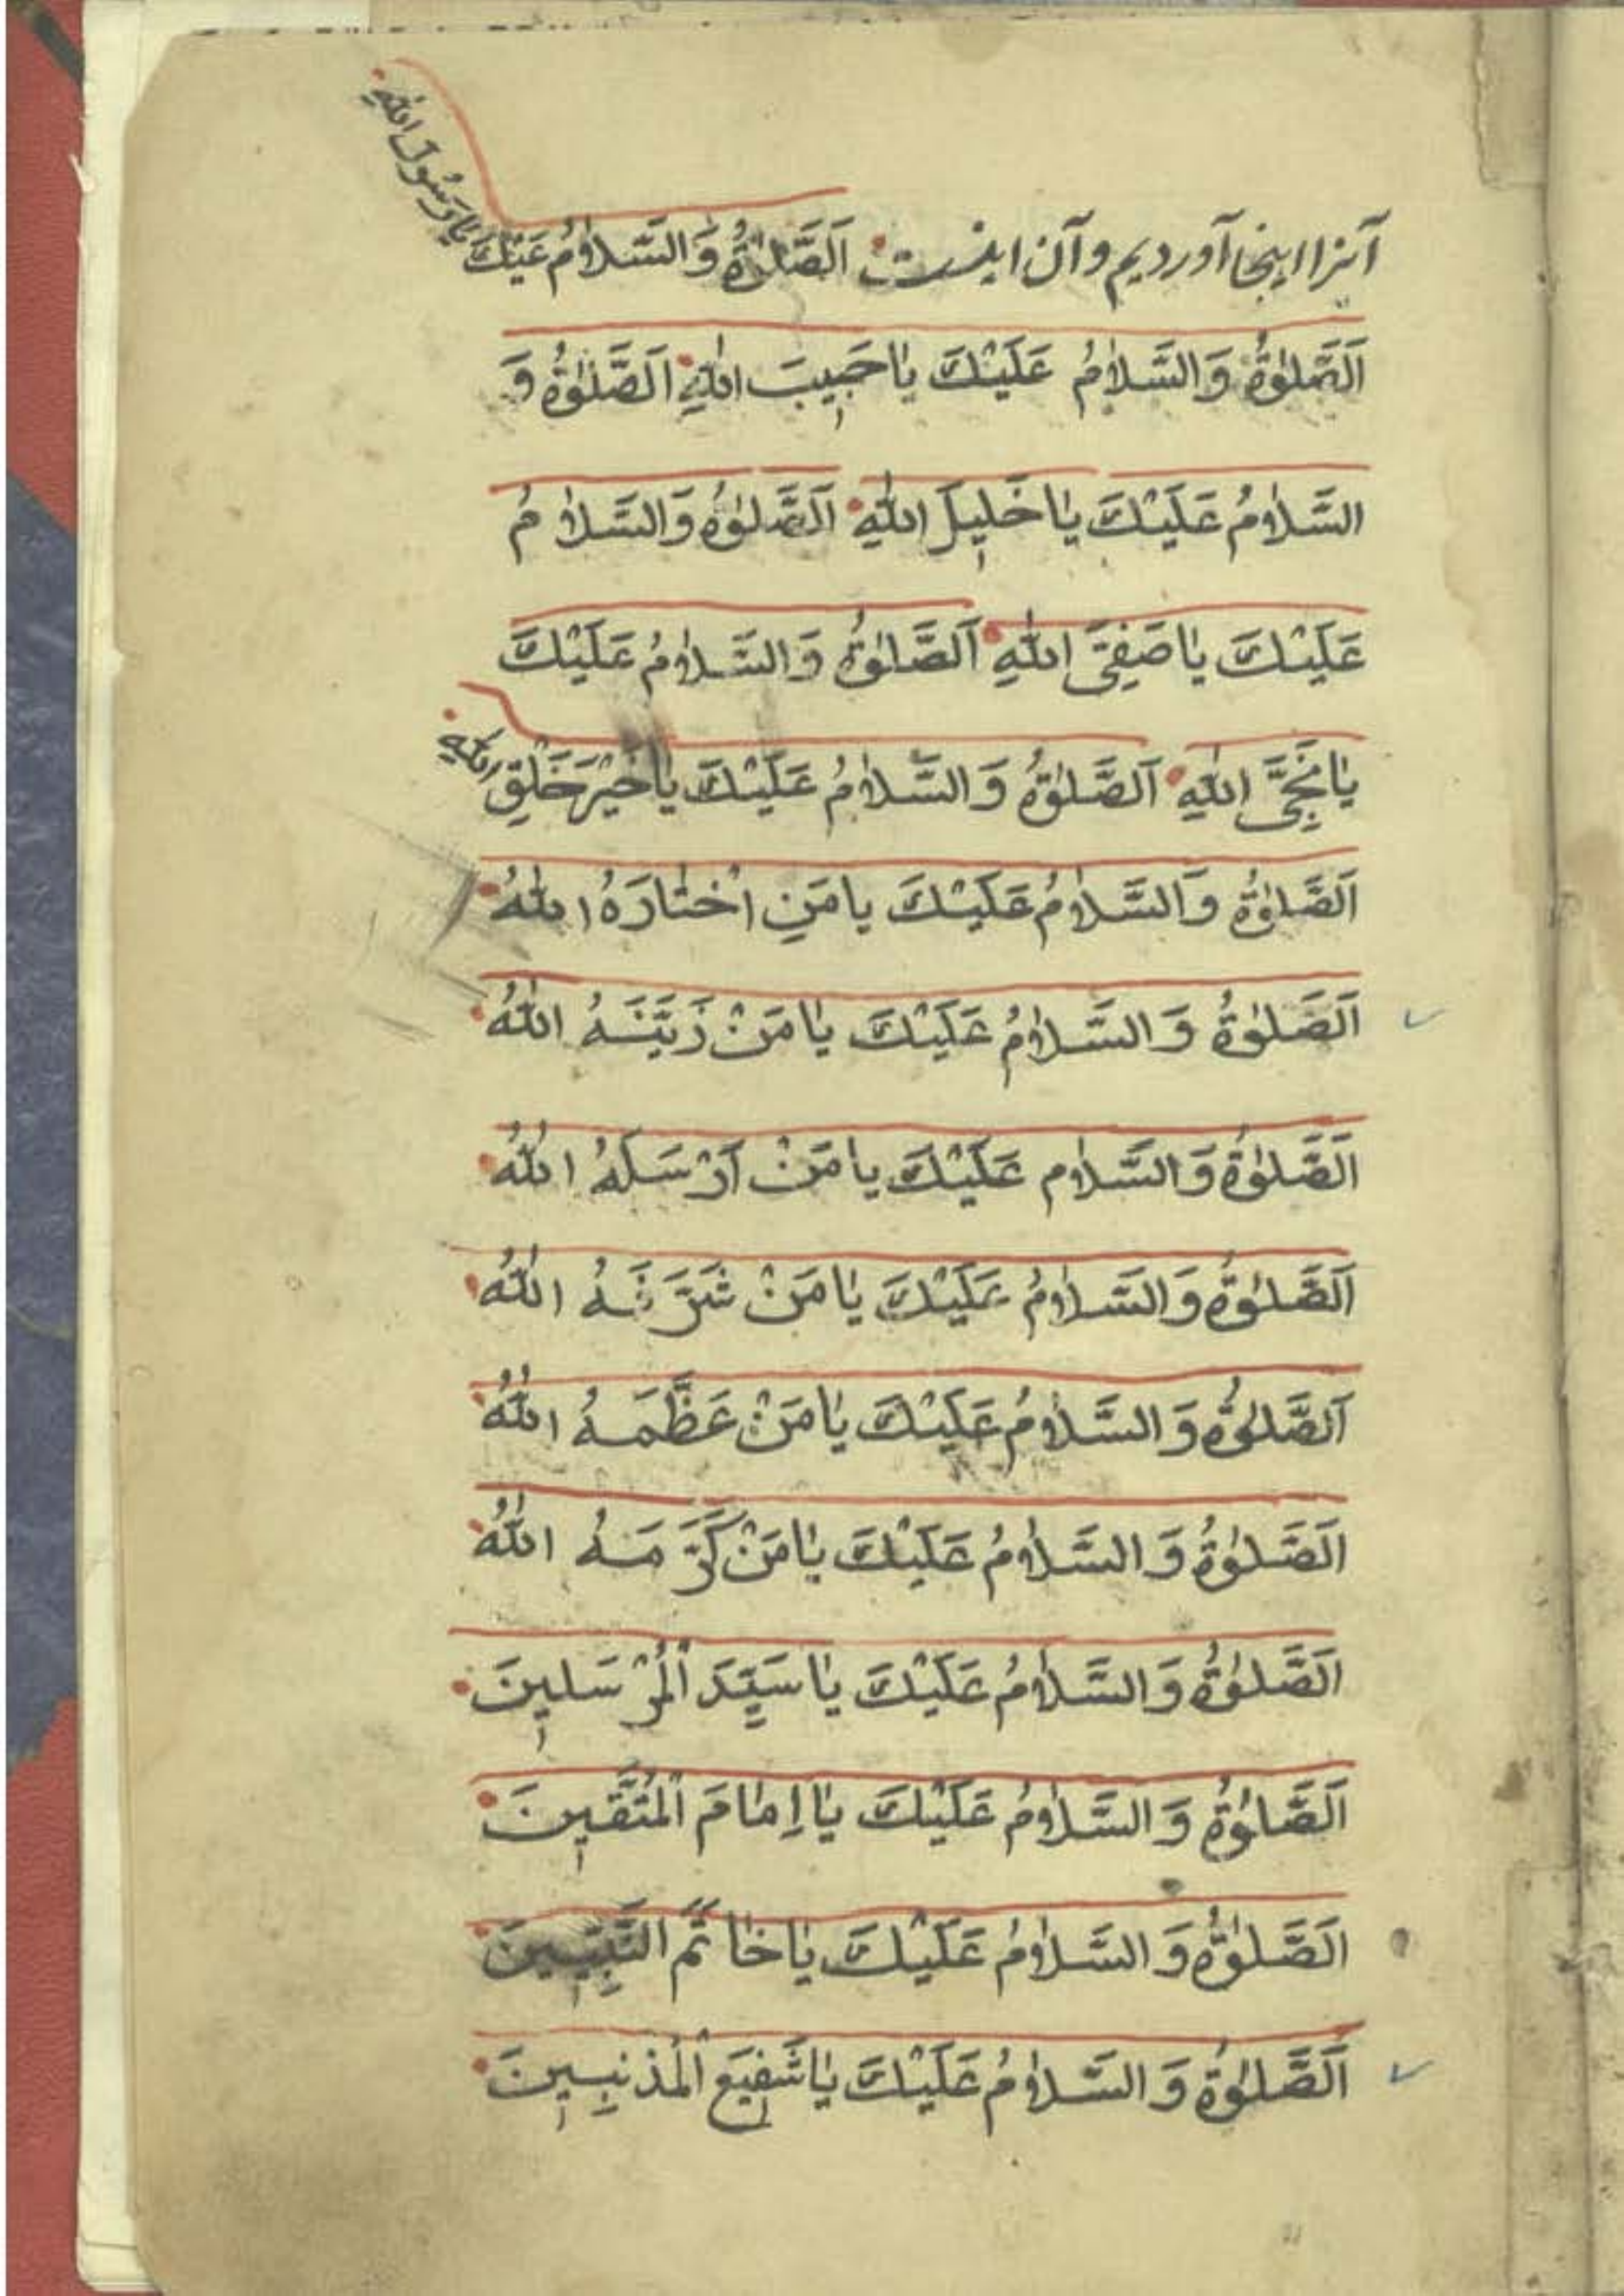 آنرا اینجا آوردیم و آن اینست اَلصَّلٰوةُ وَالسَّلاٰمُ عَلَيْكَ يٰا رَسُولَ اللهِ
اَلصَّلٰوةُ وَالسَّلاٰمُ عَلَيْكَ يٰا حَبِيبَ اللهِ اَلصَّلٰوةُ وَ
السَّلاٰمُ عَلَيْكَ يٰا خَلِيلَ اللهِ اَلصَّلٰوةُ وَالسَّلاٰمُ
عَلَيْكَ يٰا صَفِىَّ اللهِ اَلصَّلٰوةُ وَالسَّلاٰمُ عَلَيْكَ
يٰا نَجِىَّ اللهِ اَلصَّلٰوةُ وَالسَّلاٰمُ عَلَيْكَ يٰا خَيْرَ خَلْقِ اللهِ
اَلصَّلٰوةُ وَالسَّلاٰمُ عَلَيْكَ يا مَنِ اخْتٰارَهُ اللهُ
اَلصَّلٰوةُ وَالسَّلاٰمُ عَلَيْكَ يٰا مَنْ زَيَّنَهُ اللهُ
اَلصَّلٰوةُ وَالسَّلاٰم عَلَيْكَ يا مَنْ اَرْسَلَهُ اللهُ
اَلصَّلٰوةُ وَالسَّلاٰمُ عَلَيْكَ يٰا مَنْ شَرَّفَهُ اللهُ
اَلصَّلٰوةُ وَالسَّلاٰمُ عَلَيْكَ يٰا مَنْ عَظَّمَهُ اللهُ
اَلصَّلٰوةُ وَالسَّلاٰمُ عَلَيْكَ يٰا مَنْ كَرَّمَهُ اللهُ
اَلصَّلٰوةُ وَالسَّلاٰمُ عَلَيْكَ يٰا سَيِّدَ الْمُرْسَلِينَ
اَلصَّلٰوةُ وَالسَّلاٰمُ عَلَيْكَ يٰا اِمٰامَ الْمُتَّقِينَ
اَلصَّلٰوةُ وَالسَّلاٰمُ عَلَيْكَ يٰا خٰاتَمَ النَّبِيِّينَ
اَلصَّلٰوةُ وَالسَّلاٰمُ عَلَيْكَ يٰا شَفِيعَ الْمُذْنِبِينَ